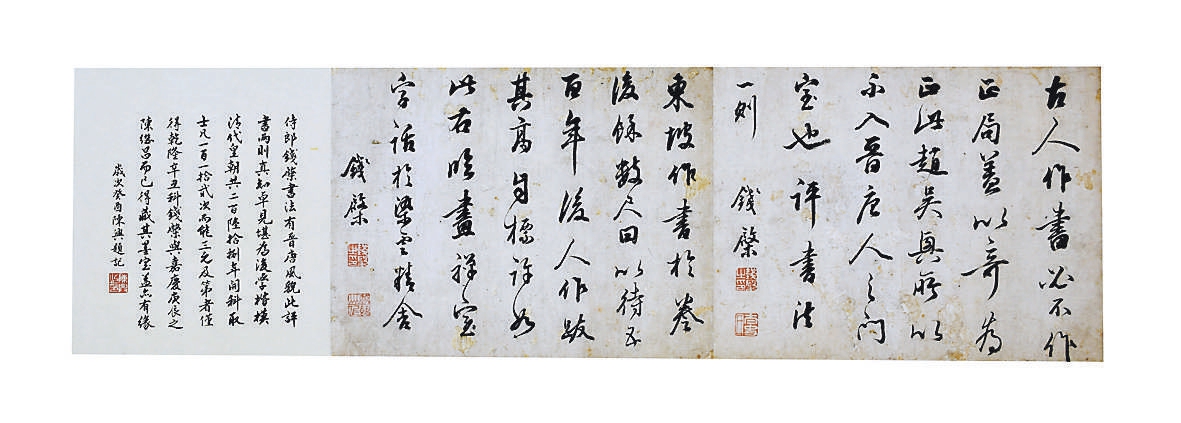 古人作書必不作
正局蓋以奇為
正此趙吳興所以
不入晉唐人之門
室也評書法
一則 錢棨
東坡作書於卷
後餘數尺曰以待五
百年後人作跋
其高自標許如
此右臨畫禪室
字話於精舍
錢棨
侍郎錢棨書法有晉唐風貌此評
書兩則真知卓見堪為後學楷模
清代皇朝共二百陸拾捌年間科取
士凡一百一拾貳次而能三元及第者僅
得乾隆辛丑科錢棨與嘉慶庚辰之
陳繼昌而已得藏其墨寶蓋亦有緣
歲次癸酉陳題記